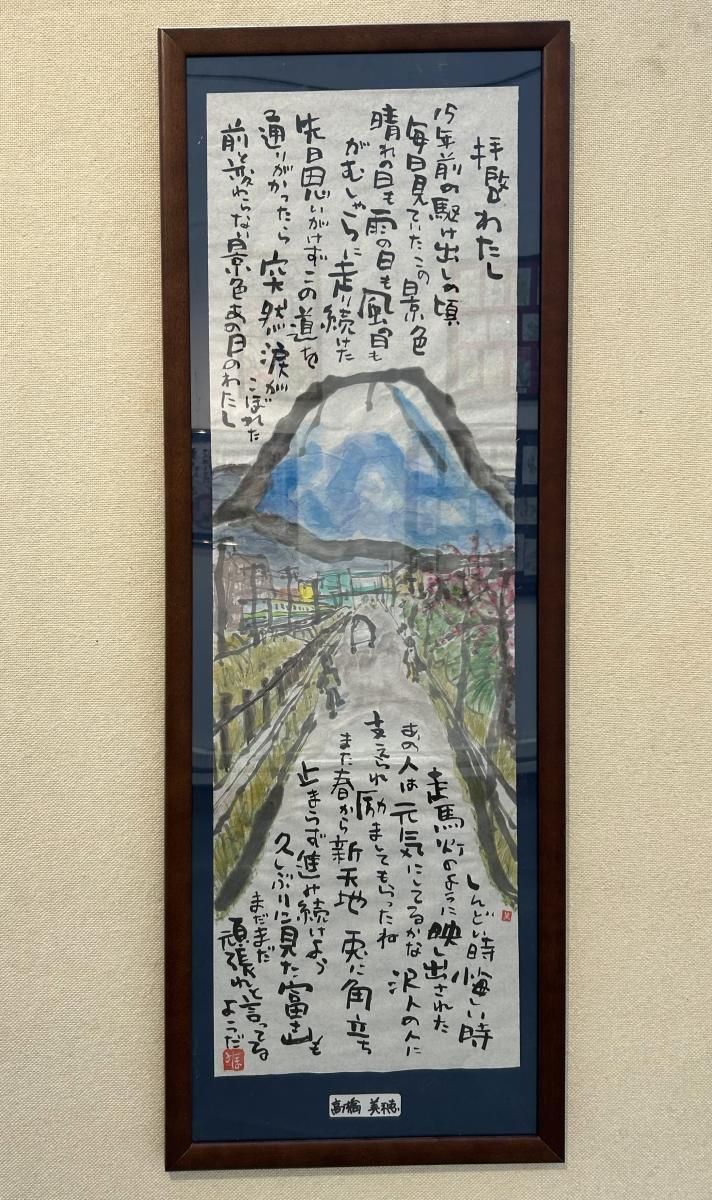 拝啓わたし
15年前の駆け出しの頃
毎日見ていたこの景色
晴れの日も雨の日も風の日も
がむしゃらに走り続けた
先日思いがけずこの道を
通りがかったら突然涙が
こぼれた
前と変わらない景色あの日のわたし
しんどい時悔しい時
走馬灯のように映し出された
あの人は元気にしてるかな沢人の人に
支えられ励ましてもらったね
また春から新天地兎に角立ち
止まらず進み続けよう
久しぶりに見た富士山も
まだまだ
頑張れと言ってる
ようだ
みほ
高橋美穂